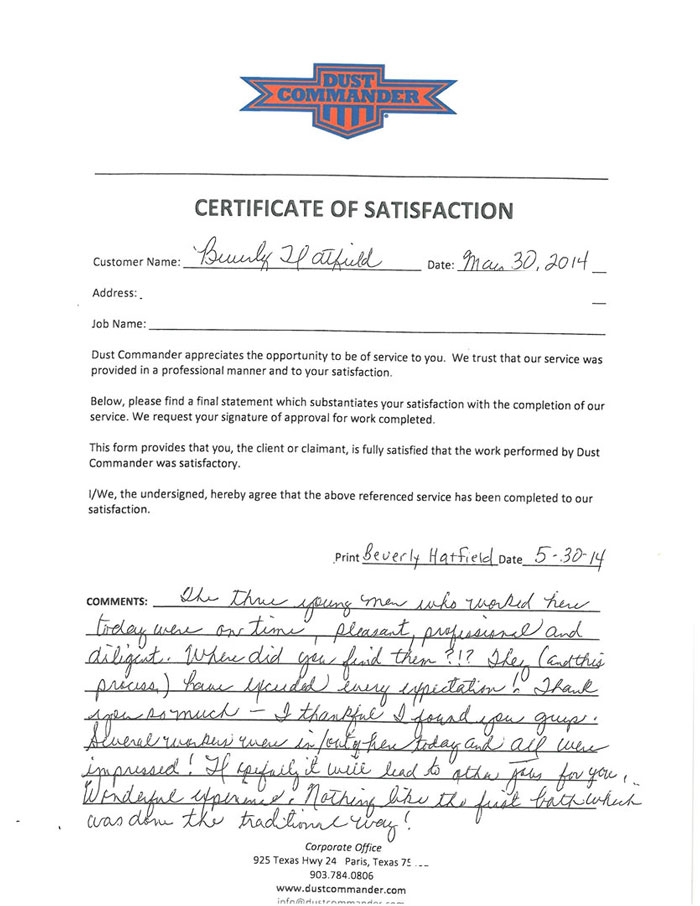 DUST
COMMANDER
CERTIFICATE OF SATISFACTION
Customer Name: Beverly Hatfield Date: May 30, 2014
Address:
Job Name:
Dust Commander appreciates the opportunity to be of service to you. We trust that our service was
provided in a professional manner and to your satisfaction.
Below, please find a final statement which substantiates your satisfaction with the completion of our
service. We request your signature of approval for work completed.
This form provides that you, the client or claimant, is fully satisfied that the work performed by Dust
Commander was satisfactory.
I/We, the undersigned, hereby agree that the above referenced service has been completed to our
satisfaction.
Print Beverly Hatfield Date 5-30-14
COMMENTS: The three young men who worked here
today were on time, pleasant, professional and
diligent. Where did you find them?!? They (and this
process) have exceeded every expectation! Thank
you so much – I thankful I found you guys.
Several workers were in/out here today and all were
impressed! Hopefully it will lead to other jobs for you.
Wonderful experience. Nothing like the first bath which
was done the traditional way!
Corporate Office
925 Texas Hwy 24 Paris, Texas
903.784.0806
www.dustcommander.com
info@dustcommander.com